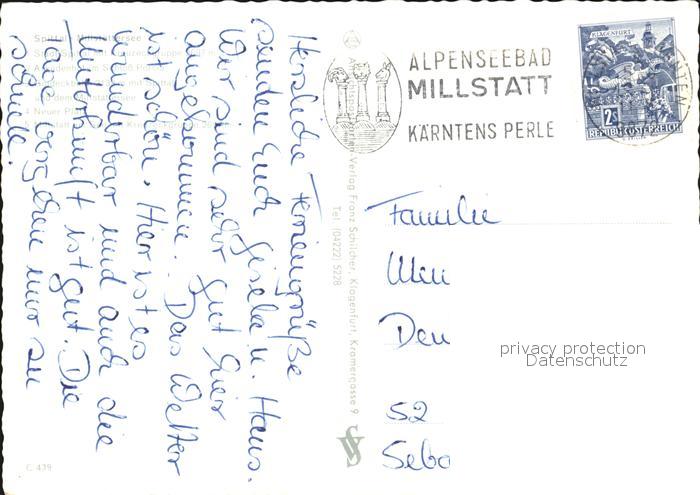 Herzliche Feriengrüße
senden Euch Gisela u. Hans.
Wir sind sehr gut hier
angekommen. Das Wetter
ist schön. Hier ist es
wunderbar und auch die
Unterkunft ist gut. Die
Tage vergehen nur zu
schnell.
Spittal Millstättersee
Neuer Pla
C 439
Verlag Franz Schilcher, Klagenfurt, Kramergasse 9
Tel. (04222) 5228
ALPENSEEBAD
MILLSTATT
KÄRNTENS PERLE
KLAGENFURT
2S
REPUBLIK ÖSTERREICH
Familie
Deu
52
Sebo
privacy protection
Datenschutz